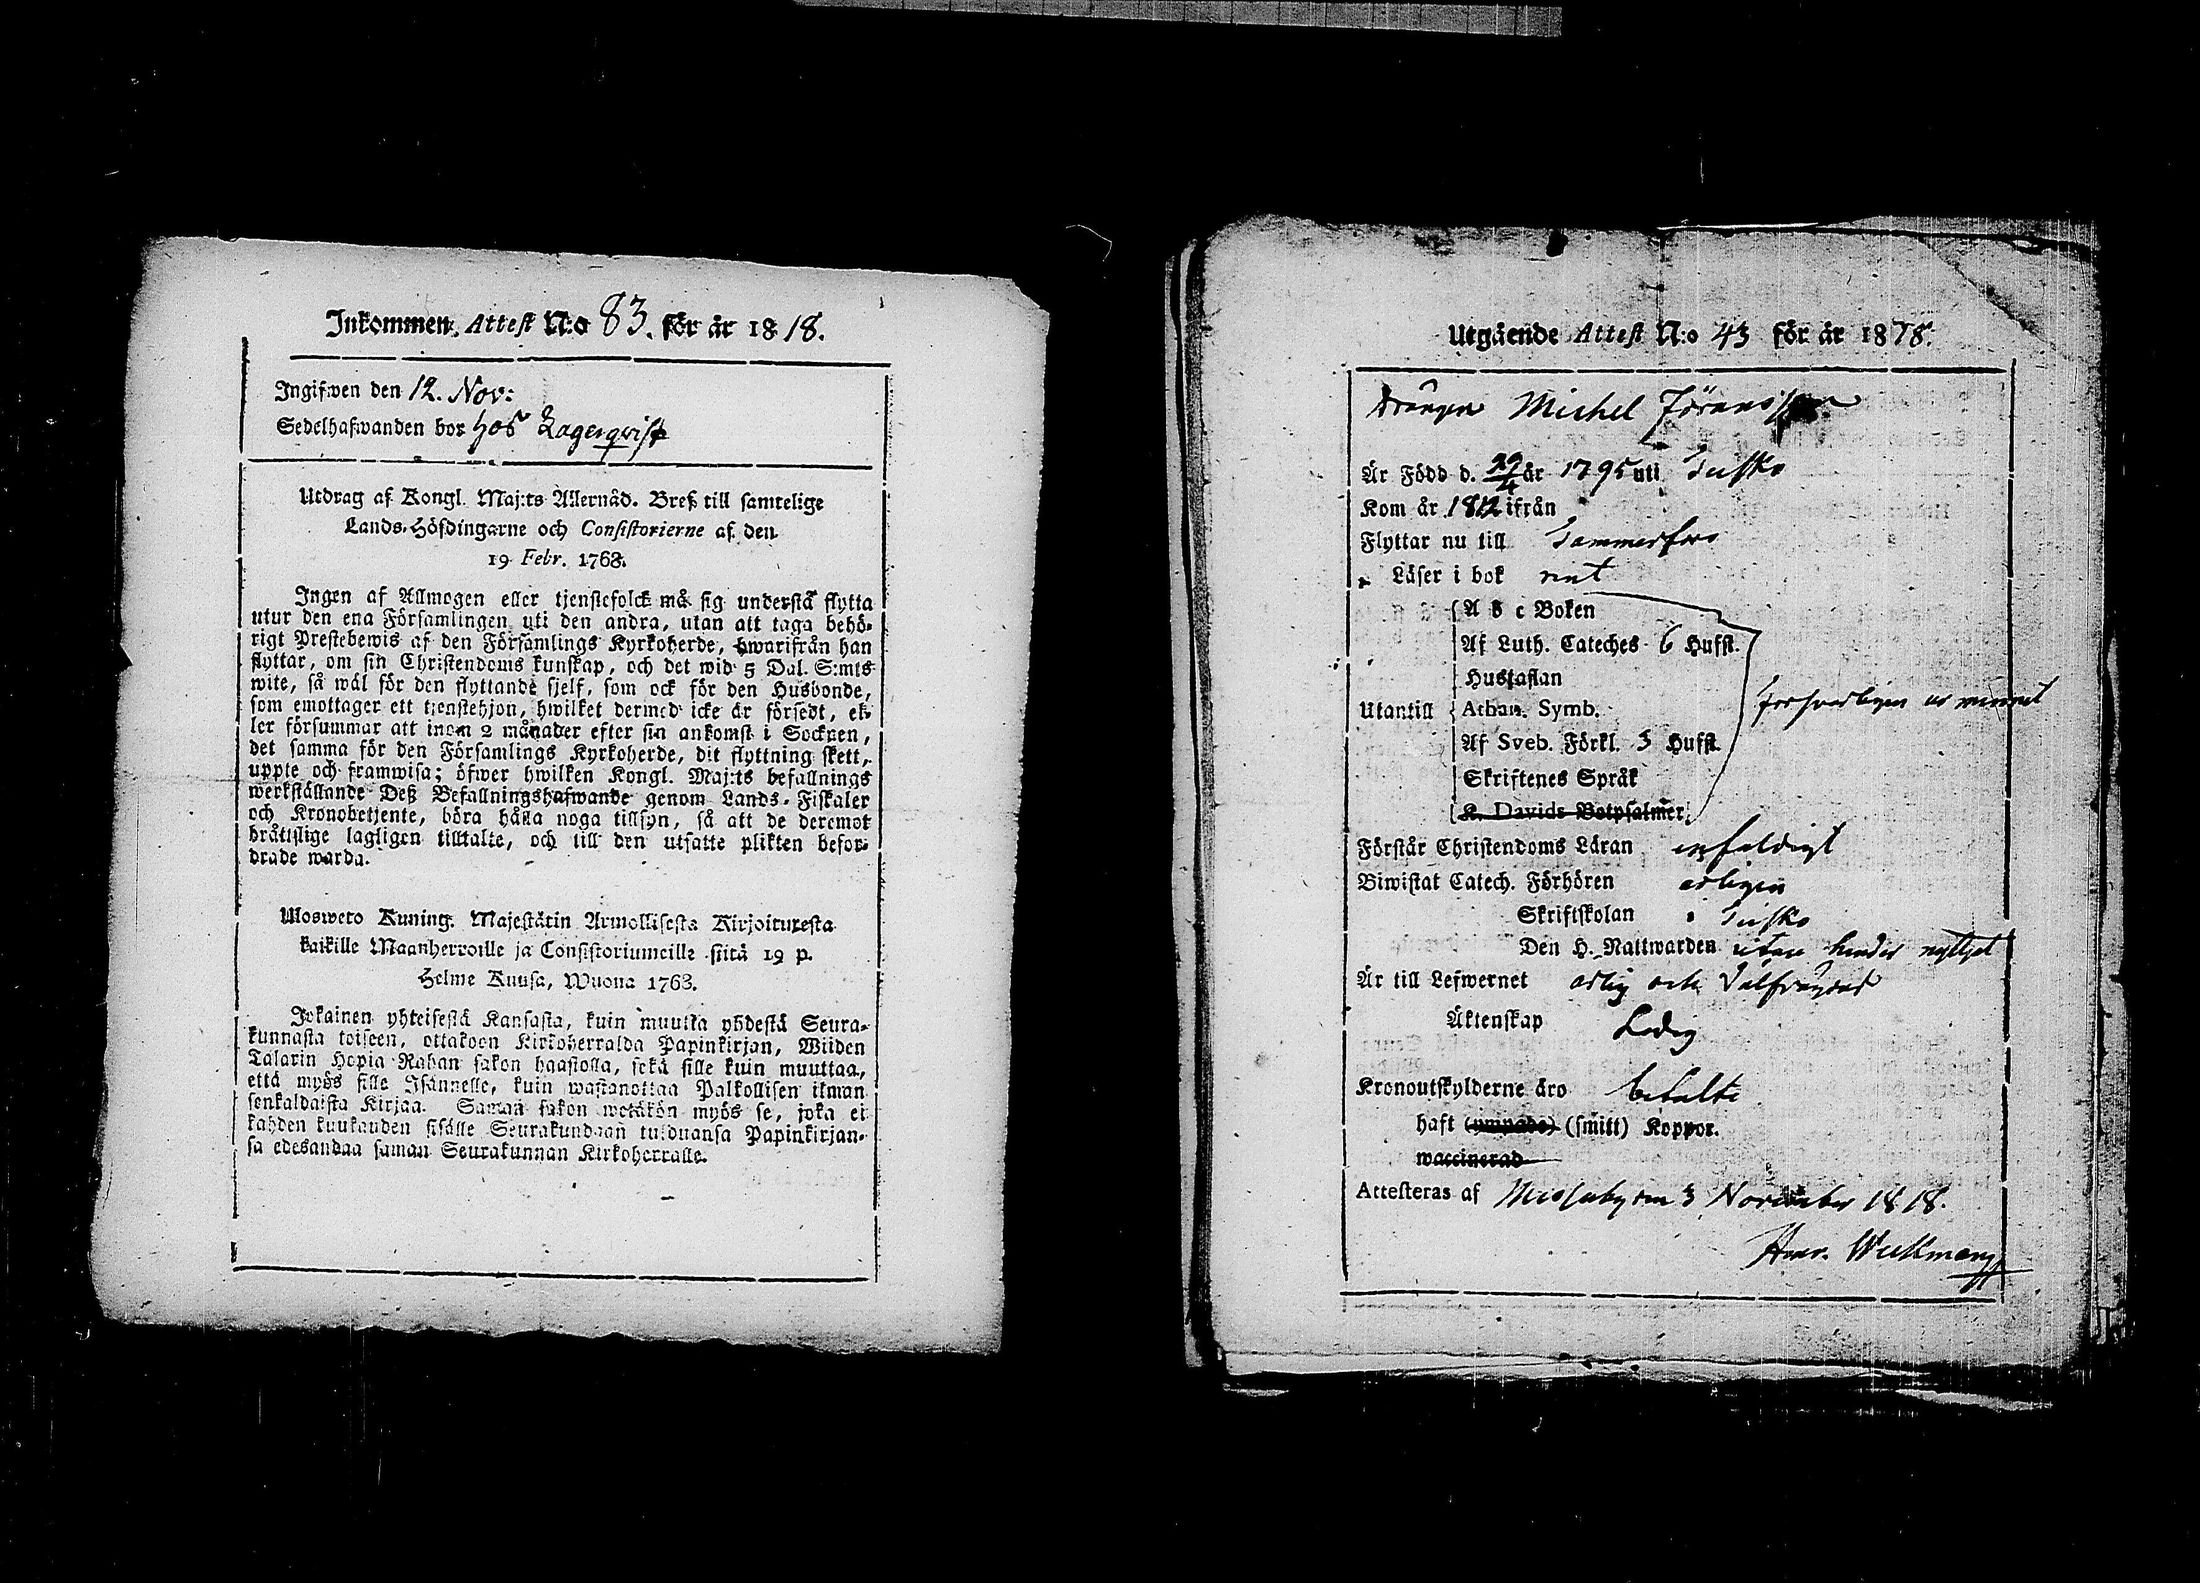 Inkommen Attest N:o 83. för år 1818.
Ingifwen den 12. Nov:
Sedelhafwanden bor hos Lagerqvist
Utdrag af Kongl. Maj:ts Allernåd. Bref till samtelige
Lands-Höfdingarne och Consistorierne af den
19 Febr. 1763.
Ingen af Allmogen eller tjenstefolck må sig understå flytta
utur den ena Församlingen uti den andra, utan att taga behö-
rigt Prestebewis af den Församlings Kyrkoherde, hwarifrån han
flyttar, om sin Christendoms kunskap, och det wid 5 Dal. S:mts
wite, så wäl för den flyttande sjelf, som ock för den Husbonde,
som emottager ett tjenstehjon, hwilket dermed icke är försedt, el-
ler försummar att inom 2 månader efter sin ankomst i Socknen,
det samma för den Församlings Kyrkoherde, dit flyttning skett,
uppte och framwisa; öfwer hwilken Kongl. Maj:ts befallnings
werkställande Deß Befallningshafwande genom Lands-Fiskaler
och Kronobetjente, böra hålla noga tillsyn, så att de deremot
bråttslige lagligen tilltalte, och till den utsatte plikten befor-
drade warda.
Ulosweto Kuning. Majestätin Armollisesta Kirjoituresta
kaikille Maanherroille ja Consistoriumeille siitä 19 p.
Helme Kuusa, Wuona 1763.
Jokainen yhteisestä Kansasta, kuin muutta yhdestä Seura-
kunnasta toiseen, ottakoon Kirkoherralda Papinkirjan, Wiiden
Talarin Hopia Rahan sakon haastolla, sekä sille kuin muuttaa,
että myös sille Isännelle, kuin wastanottaa Palkollisen ilman
senkaldaista Kirjaa. Saman sakon wetäkön myös se, joka ei
kahden kuukauden sisälle Seurakundaan tulduansa Papinkirjan-
sa edesandaa saman Seurakunnan Kirkoherralle.
Utgående Attest N:o 43 för år 1818.
Drängen Michel Jöransson
Är Född d. 29/4 år 1795 uti Tufsko
Kom år 1812 ifrån
Flyttar nu till Tammerfors
Läser i bok rent
A b c Boken
Af Luth. Cateches 6 Hufst.
Hustaflan
Utantill Athan. Symb. försvarligen ur minnet
Af Sveb. Förkl. 3 Hufst.
Skriftenes Språk
K. Davids Botpsalmer
Förstår Christendoms Läran enfaldigt
Biwistat Catech. Förhören årligen
Skriftskolan i Tufsko
Den H. Nattwarden utan hinder nyttjat
Är till Lefwernet ärlig och välfrägdad
Äktenskap Ledig
Kronoutskylderne äro betalte
haft (ympade) (smitt) Koppor.
waccinerad
Attesteras af den 3 November 1818.